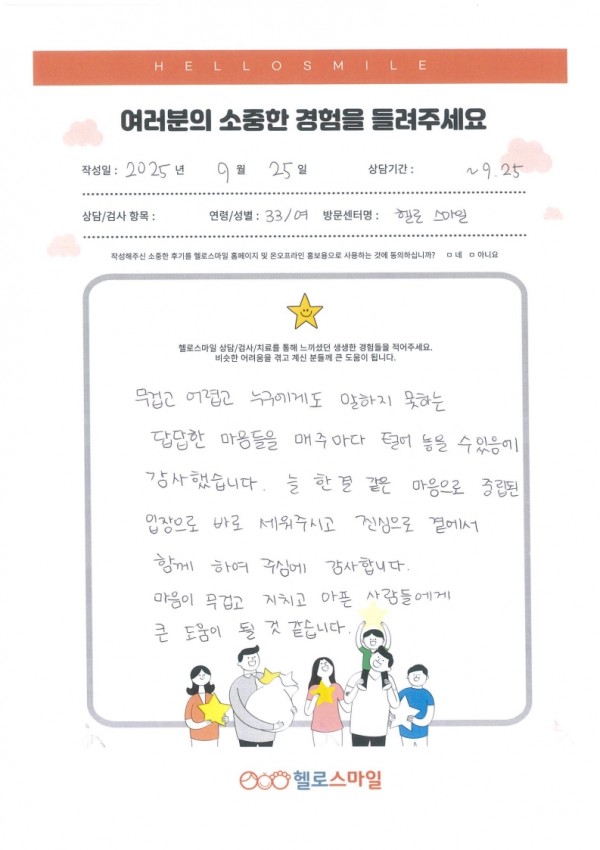 HELLOSMILE
여러분의 소중한 경험을 들려주세요
작성일 : 2025 년 9 월 25 일 상담기간 : ~9.25
상담/검사 항목 : 연령/성별 : 33/여 방문센터명 : 헬로 스마일
작성해주신 소중한 후기를 헬로스마일 홈페이지 및 온오프라인 홍보용으로 사용하는 것에 동의하십니까? ㅁ 네 ㅁ 아니요
헬로스마일 상담/검사/치료를 통해 느끼셨던 생생한 경험들을 적어주세요.
비슷한 어려움을 겪고 계신 분들께 큰 도움이 됩니다.
무겁고 어렵고 누구에게도 말하지 못하는
답답한 마음들을 매주마다 털어 놓을 수 있음에
감사했습니다. 늘 한결 같은 마음으로 중립된
입장으로 바로 세워주시고 진심으로 곁에서
함께 하여 주심에 감사합니다.
마음이 무겁고 지치고 아픈 사람들에게
큰 도움이 될 것 같습니다.
헬로스마일